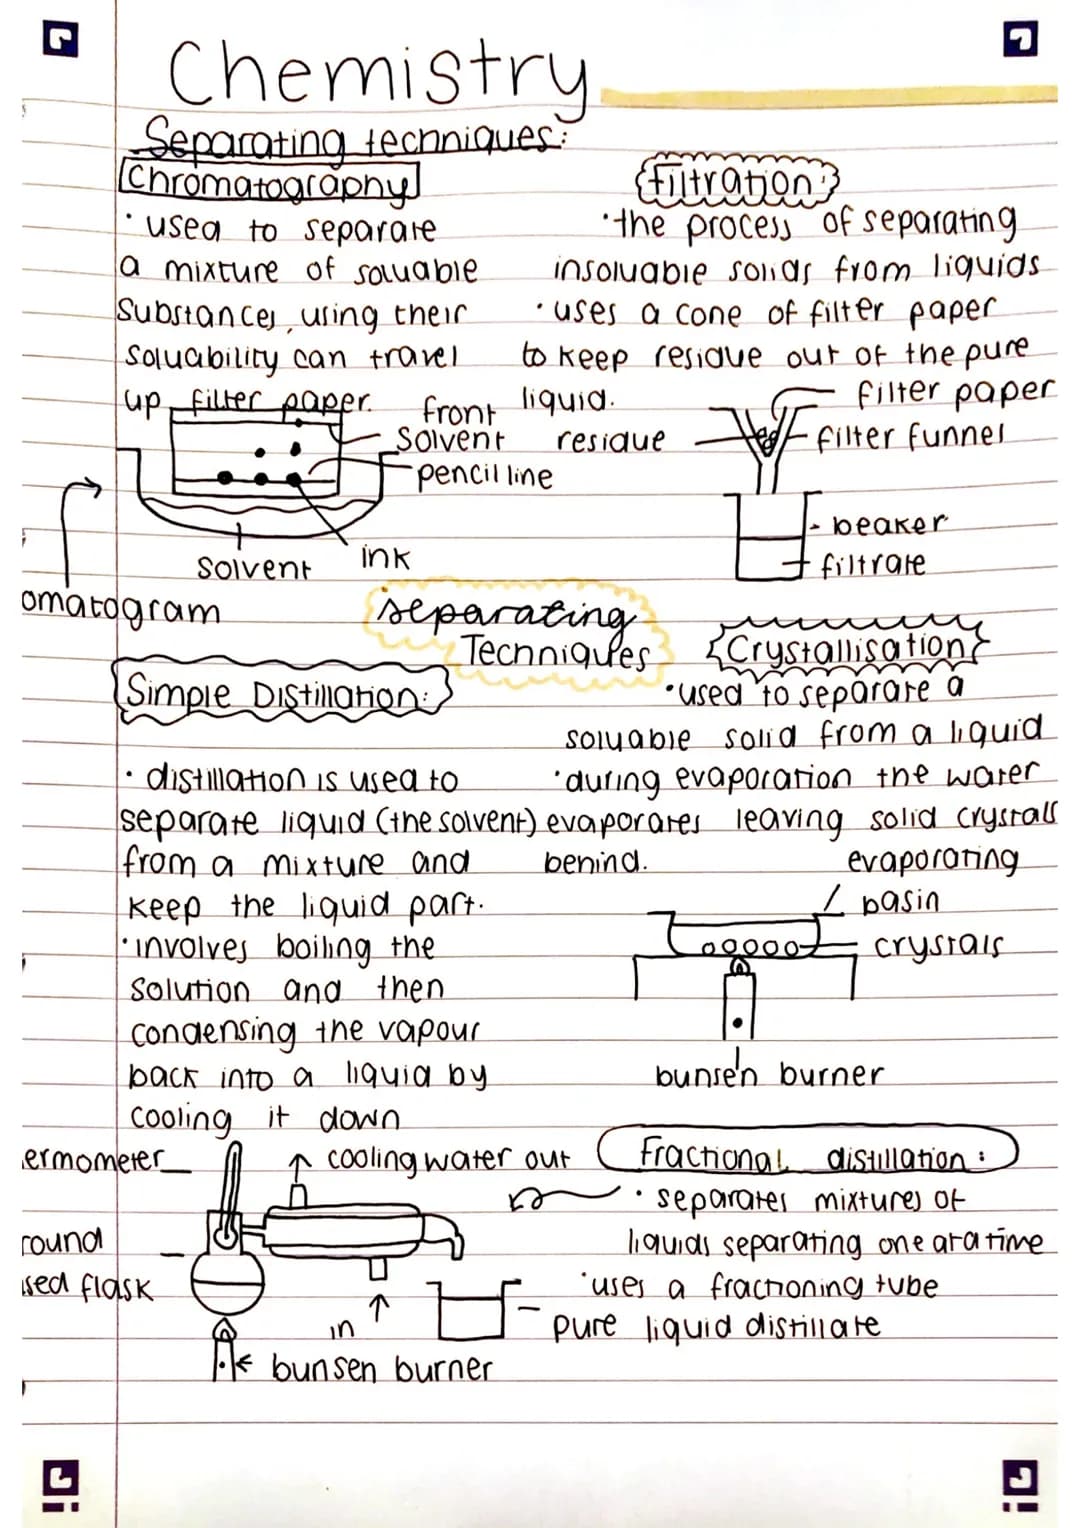 Chemistry
Separating techniques:
Chromatography
· used to separate
a mixture of soluable
Substances, using their
Soluability can travel
up filter paper.
front
Solvent
pencil line
ink
Solvent
omatogram
Filtration:
· the process of separating
insoluable solids from liquids
· uses a cone of filter paper
to keep residue out of the pure
liquid.
filter paper
residue
filter funnel
- beaker
filtrate
separating
Techniques
Simple Distillation:
· distillation is used to
separate liquid (the solvent)
from a mixture and
keep the liquid part.
· involves boiling the
solution and then
condensing the vapour
back into a liquid by
cooling it down
ermometer
cooling water out
round
sed flask
in
bunsen burner
pure liquid distillate
Crystallisation
· used to separate a
soluable solid from a liquid
· during evaporation the water
evaporates leaving solid crystals
behind.
evaporating
basin
crystals
bunsen burner
Fractional distillation:
· separates mixtures of
liquids separating one at a time
· uses a fractioning tube